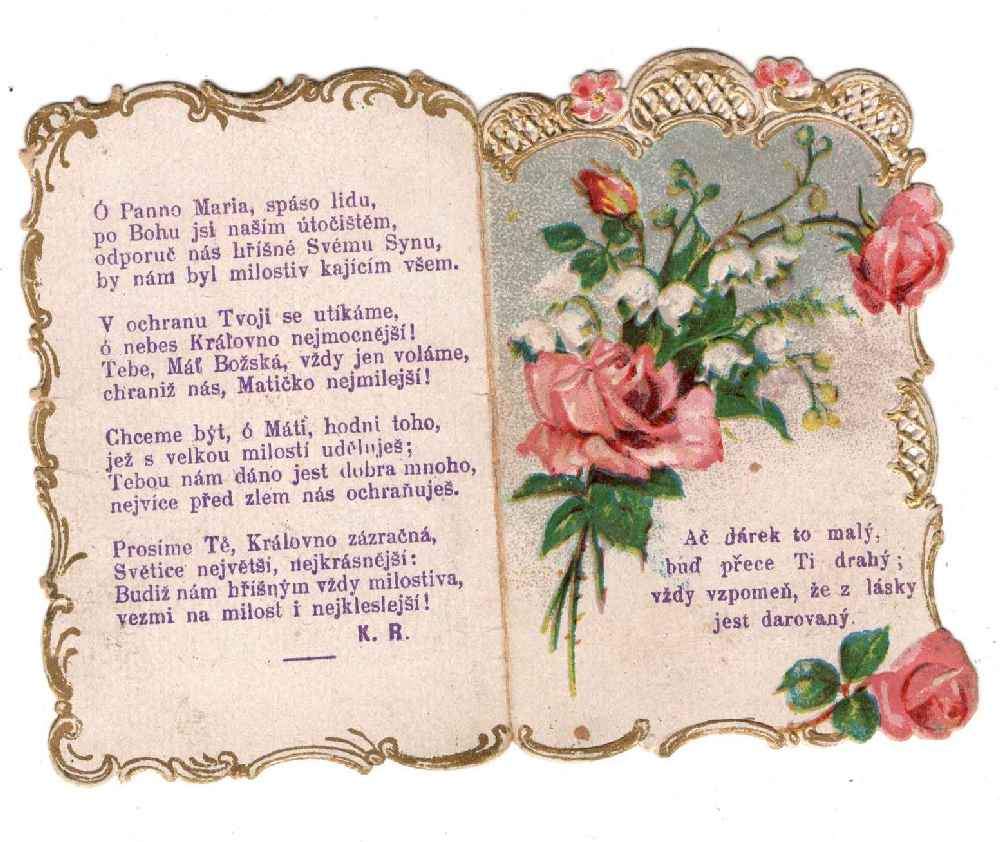 Ó Panno Maria, spáso lidu,
po Bohu jsi naším útočištěm,
odporuč nás hříšné Svému Synu,
by nám byl milostiv kajícím všem.
V ochranu Tvoji se utíkáme,
ó nebes Královno nejmocnější!
Tebe, Máť Božská, vždy jen voláme,
chraniž nás, Matičko nejmilejší!
Chceme být, ó Máti, hodni toho,
jež s velkou milostí uděluješ;
Tebou nám dáno jest dobra mnoho,
nejvíce před zlem nás ochraňuješ.
Prosíme Tě, Královno zázračná,
Světice největší, nejkrásnější:
Budiž nám hříšným vždy milostiva,
vezmi na milost i nejkleslejší!
K. R.
Ač dárek to malý,
buď přece Ti drahý;
vždy vzpomeň, že z lásky
jest darovaný.